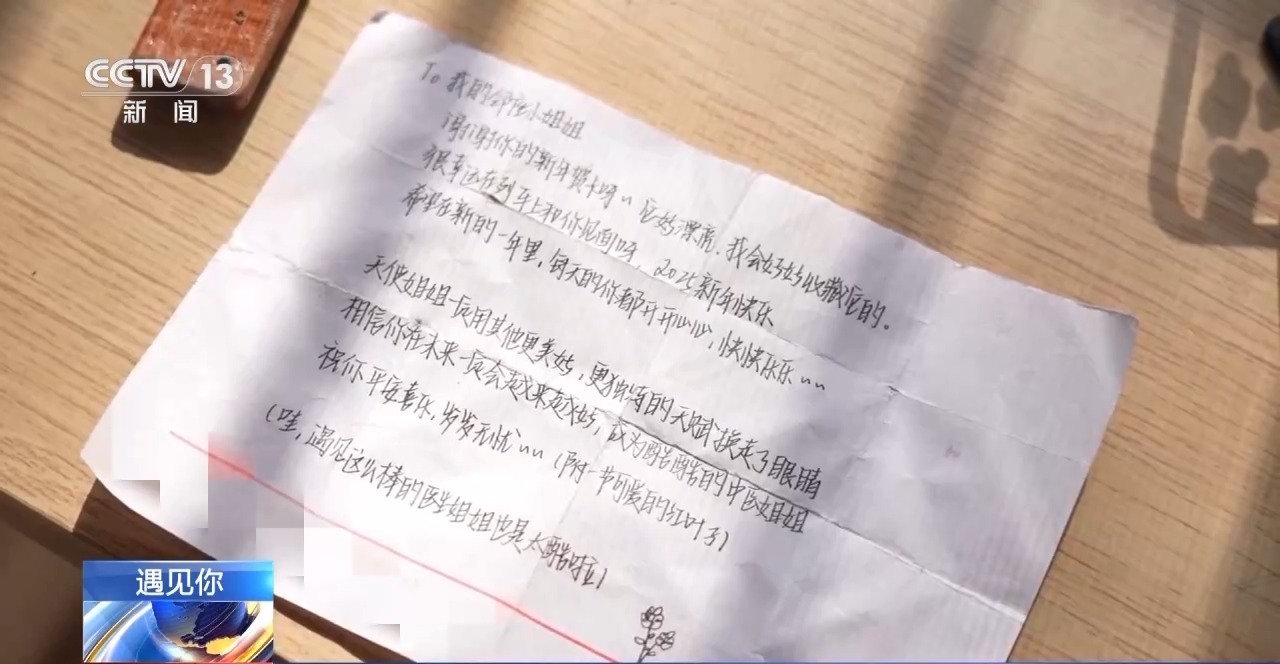 CCTV 13
新闻
To 我的邻座小姐姐
谢谢你的新年贺卡呀~ 它好漂亮.我会好好收藏它的。
很幸运在列车上和你见面呀 2025新年快乐
希望在新的一年里,每天的你都开开心心,快快乐乐~~
天使姐姐一定用其他更美好,更独特的天赋换走了眼睛
相信你在未来一定会越来越好,成为酷酷的中医姐姐
祝你平安喜乐,岁岁无忧~~(附一节可爱的红叶子)
(哇,遇见这么棒的医生姐姐也是太酷啦)
遇见你